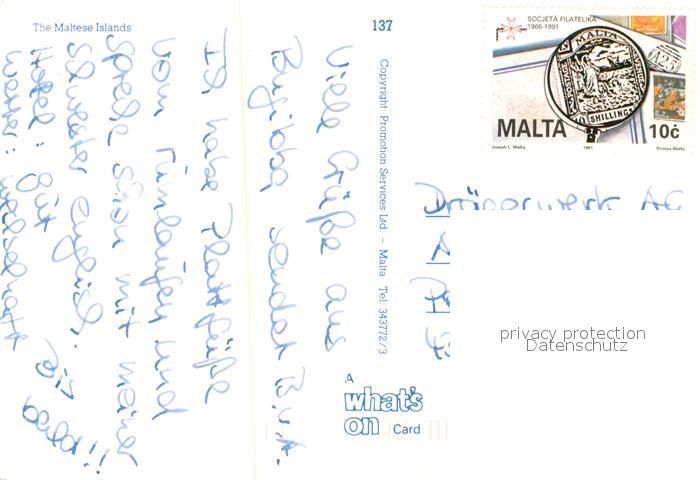 The Maltese Islands
137
SOĊJETÀ FILATELIKA
1966-1991
MALTA
10ċ
Joseph L. Mallia
1991
Printex-Malta
Copyright Promotion Services Ltd. – Malta Tel: 343772/3
A
what's
on Card
privacy protection
Datenschutz
Drägerwerk AG
Viele Grüße aus
Bugibba sendet B.u.A.
Ich habe Plattfüße
vom Rumlaufen und
Spreche schon mit meiner
Schwester englisch.
Hotel: gut
Wetter: wechselhaft